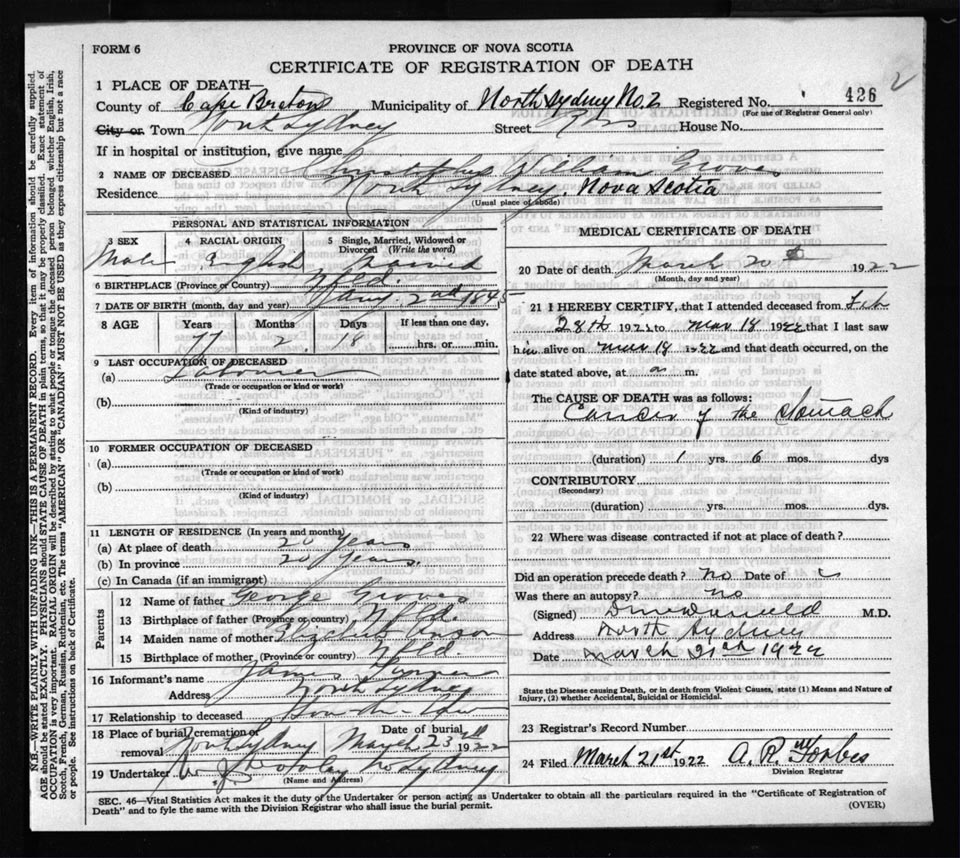 FORM 6
PROVINCE OF NOVA SCOTIA
CERTIFICATE OF REGISTRATION OF DEATH
2
1 PLACE OF DEATH—
County of Cape Breton Municipality of North Sydney No. 2 Registered No. 426
(For use of Registrar General only)
City or Town North Sydney Street House No.
If in hospital or institution, give name
2 NAME OF DECEASED William Groves
Residence North Sydney, Nova Scotia
(Usual place of abode)
PERSONAL AND STATISTICAL INFORMATION
3 SEX 4 RACIAL ORIGIN 5 Single, Married, Widowed or Divorced (Write the word)
Male English Married
6 BIRTHPLACE (Province or Country) Nfld.
7 DATE OF BIRTH (month, day and year) Jany 2nd 1845
8 AGE Years Months Days If less than one day,
77 2 18 hrs. or min.
9 LAST OCCUPATION OF DECEASED
(a) Labourer
(Trade or occupation or kind of work)
(b)
(Kind of industry)
10 FORMER OCCUPATION OF DECEASED
(a)
(Trade or occupation or kind of work)
(b)
(Kind of industry)
11 LENGTH OF RESIDENCE (In years and months)
(a) At place of death 20 years
(b) In province 20 years.
(c) In Canada (if an immigrant)
Parents
12 Name of father George Groves
13 Birthplace of father (Province or country) Nfld.
14 Maiden name of mother Elizabeth
15 Birthplace of mother (Province or country) Nfld.
16 Informant's name James
Address North Sydney
17 Relationship to deceased Son in law
18 Place of burial, cremation or removal North Sydney Date of burial March 23rd 1922
19 Undertaker No Sydney
(Name and Address)
MEDICAL CERTIFICATE OF DEATH
20 Date of death March 20 1922
(Month, day and year)
21 I HEREBY CERTIFY, that I attended deceased from Feb
28th 1922 to Mar 18 1922 that I last saw
him alive on Mar 18 1922 and that death occurred, on the
date stated above, at m.
The CAUSE OF DEATH was as follows:
Cancer of the stomach
(duration) 1 yrs. 6 mos. dys
CONTRIBUTORY
(Secondary)
(duration) yrs. mos. dys.
22 Where was disease contracted if not at place of death?
Did an operation precede death? No Date of
Was there an autopsy? No
(Signed) M.D.
Address North Sydney
Date March 21st 1922
State the Disease causing Death, or in death from Violent Causes, state (1) Means and Nature of Injury, (2) whether Accidental, Suicidal or Homicidal.
23 Registrar's Record Number
24 Filed March 21st 1922 A. R. Forbes
Division Registrar
SEC. 46—Vital Statistics Act makes it the duty of the Undertaker or person acting as Undertaker to obtain all the particulars required in the "Certificate of Registration of
Death" and to fyle the same with the Division Registrar who shall issue the burial permit. (OVER)
N.B.—WRITE PLAINLY WITH UNFADING INK—THIS IS A PERMANENT RECORD. Every item of information should be carefully supplied.
AGE should be stated EXACTLY. PHYSICIANS should STATE CAUSE OF DEATH in plain terms, so that it may be properly classified. Exact statement of
OCCUPATION is very important. RACIAL ORIGIN will be described by stating to what people or tongue the deceased person belonged whether English, Irish,
Scotch, French, German, Russian, Ruthenian, etc. The terms "AMERICAN" OR "CANADIAN" MUST NOT BE USED as they express citizenship but not a race
or people. See instructions on back of Certificate.